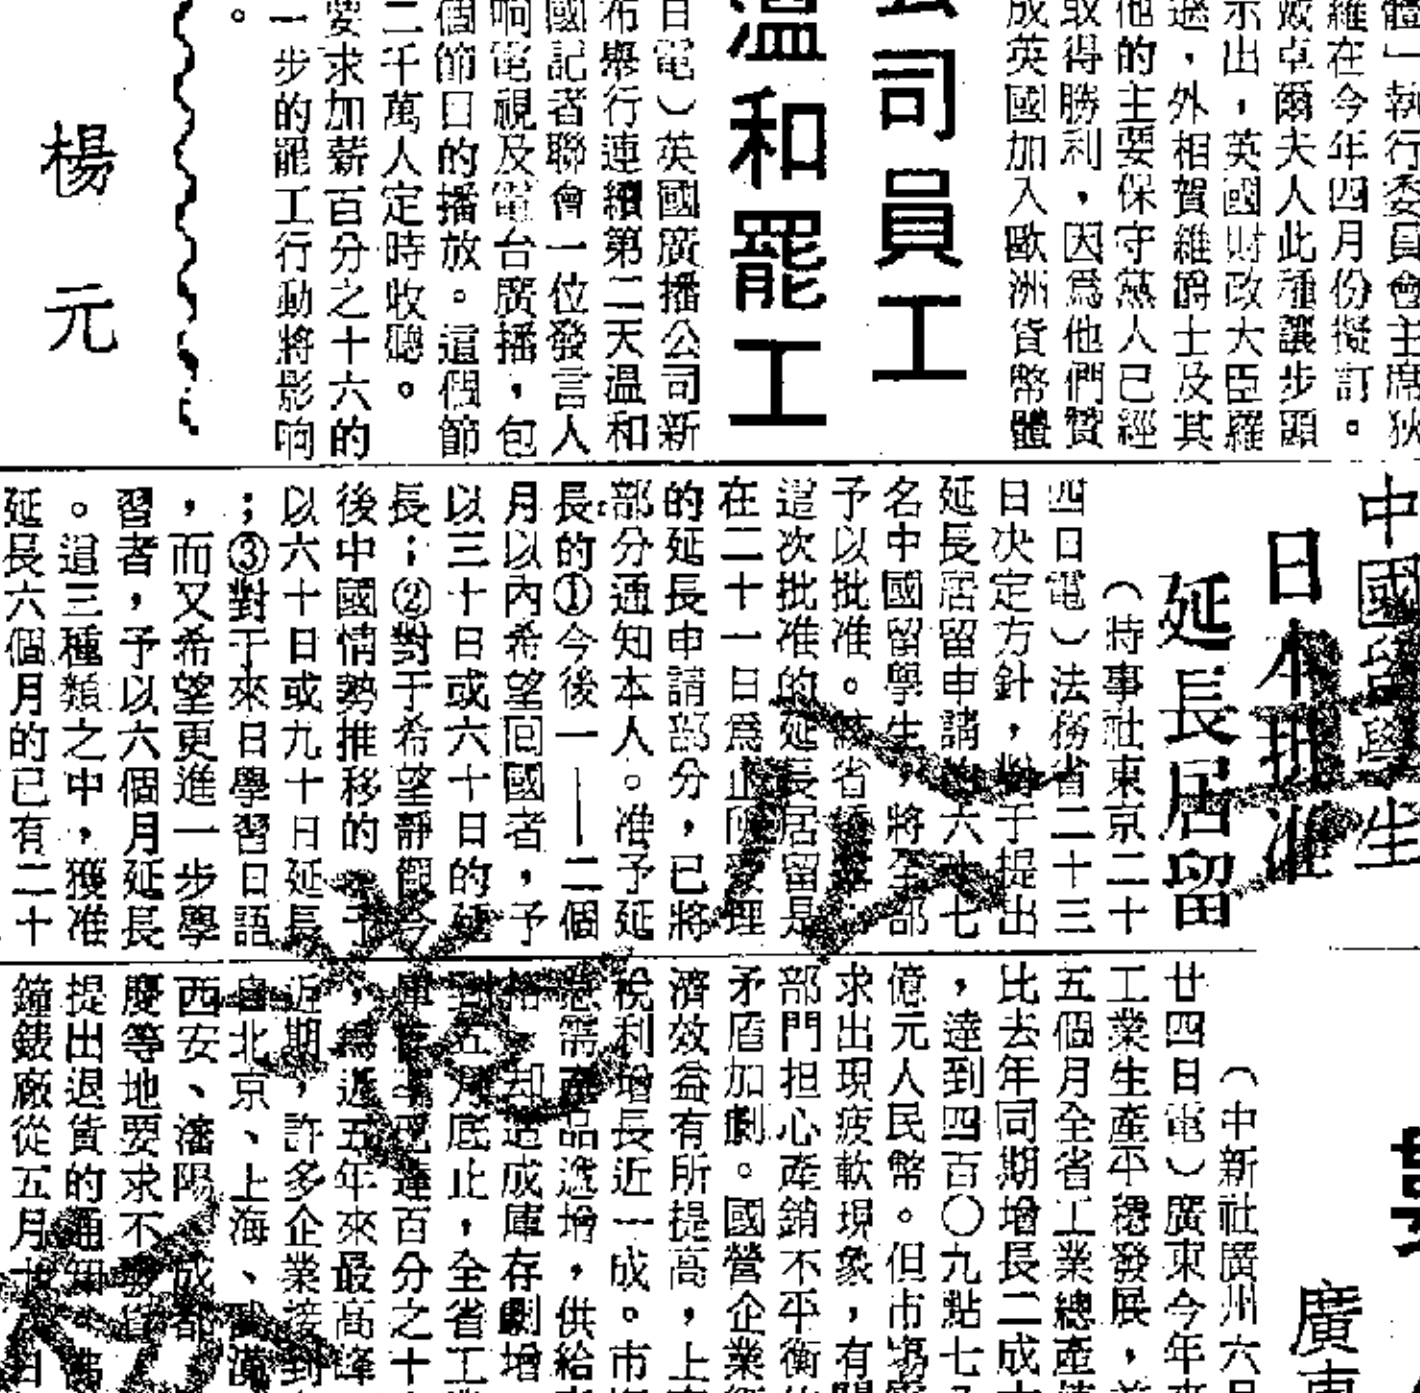 體」執行委員會主席狄
羅在今年四月份擬訂。
卓爾夫人此種讓步顯
示出，英國財政大臣羅
遜，外相賀維爵士及其
他的主要保守黨人已經
取得勝利，因爲他們贊
成英國加入歐洲貨幣體
公司員工
溫和罷工
日電）英國廣播公司新
布舉行連續第二天溫和
國記者聯會一位發言人
响電視及電台廣播，包
個節日的播放。這個節
二千萬人定時收聽。
要求加薪百分之十六的
一步的罷工行動將影响
。
楊元
中國留學生
日本批准
延長居留
（時事社東京二十
四日電）法務省二十三
日决定方針，對于提出
延長居留申請的六十七
名中國留學生，將全部
予以批准。該省
這次批准的延長居留是
在二十一日爲止所受理
的延長申請部分，已將
部分通知本人。准予延
長的①今後一——二個
月以內希望回國者，予
以三十日或六十日的延
長；②對于希望靜觀今
後中國情勢推移的，予
以六十日或九十日延長
；③對于來日學習日語
，而又希望更進一步學
習者，予以六個月延長
。這三種類之中，獲准
延長六個月的已有二十
廣東
（中新社廣州六月
廿四日電）廣東今年來
工業生產平穩發展，首
五個月全省工業總產值
比去年同期增長二成
，達到四百〇九點七
億元人民幣。但市場
求出現疲軟現象，有關
部門担心產銷不平衡的
矛盾加劇。國營企業
濟效益有所提高，上
稅利增長近一成。市場
急需產品遞增，供給
却造成庫存劇增
到五月底止，全省工
達百分之十
，爲近五年來最高峰
近期，許多企業接到
自北京、上海、武漢
西安、瀋陽、成都
慶等地要求不發貨
提出退貨的通知。
鐘錶廠從五月